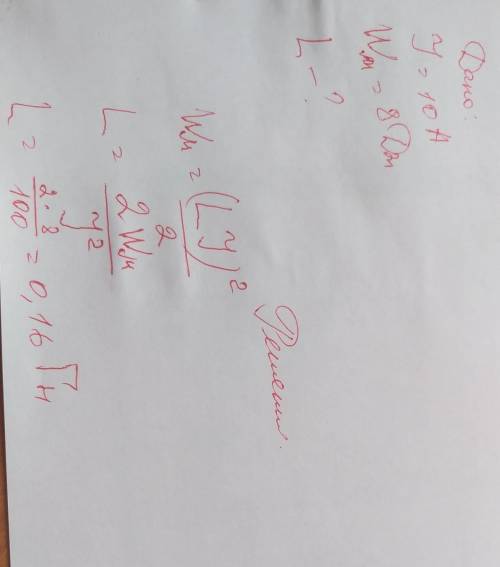 Дано:
I = 10 А
Wм = 8 Дж
L - ?
Решение.
Wм = (L I)² / 2
L = 2 Wм / I²
L = 2 · 8 / 100 = 0,16 Гн